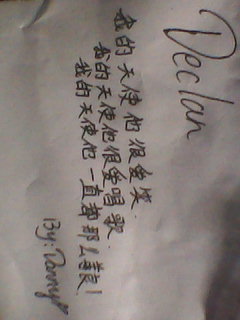 Declan
我的天使他很爱笑.
我的天使他很爱唱歌.
我的天使他一直都那么
By: Danny